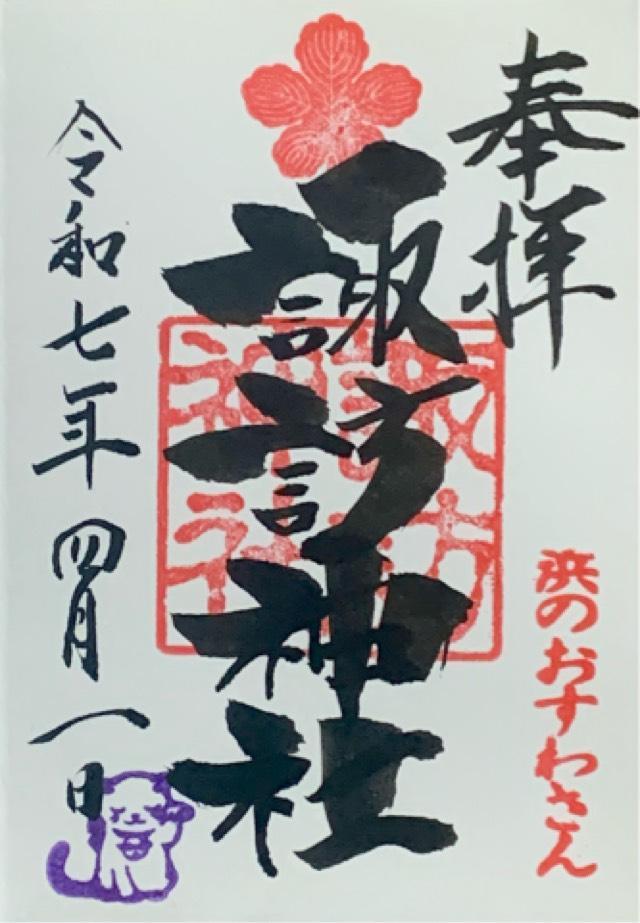 奉拝
諏訪神社
諏訪
神社
浜のおすわさん
令和七年四月一日